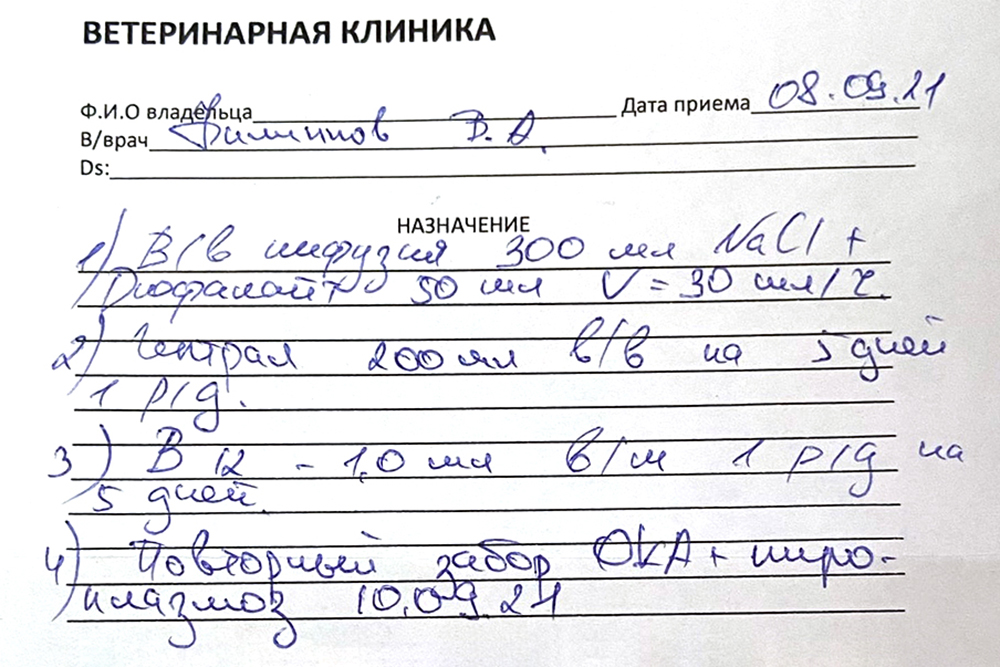 ВЕТЕРИНАРНАЯ КЛИНИКА
Ф.И.О владельца Дата приема 08.09.21
В/врач Филиппов В.А.
Ds:
НАЗНАЧЕНИЕ
1) В/в инфузия 300 мл NaCl +
Дюфалайт 50 мл V = 30 мл/ч.
2) 200 мл в/в на 5 дней
1 р/д.
3) В 12 - 1,0 мл в/м 1 р/д на
5 дней.
4) Повторный забор ОКА + пиро-
плазмоз 10.09.21